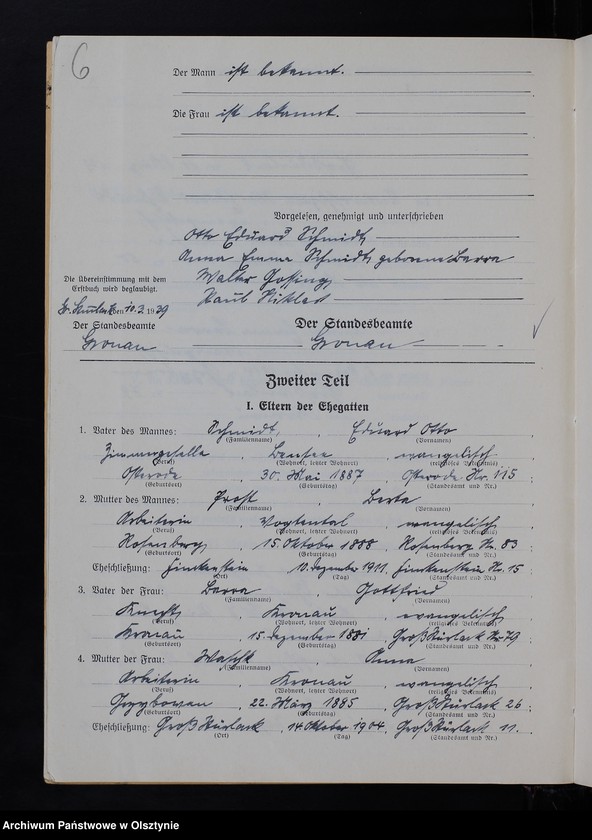 6
Der Mann ist bekannt.
Die Frau ist bekannt.
Vorgelesen, genehmigt und unterschrieben
Otto Eduard Schmidt
Anna Emma Schmidt geborene Berra
Walter
Paul
Die Übereinstimmung mit dem
Erstbuch wird beglaubigt.
Gr. Stürlack den 10.2.1939
Der Standesbeamte
Gronau
Der Standesbeamte
Gronau
Zweiter Teil
I. Eltern der Ehegatten
1. Vater des Mannes: Schmidt, Eduard Otto
(Familienname) (Vornamen)
Zimmergeselle, Bensee, evangelisch
(Beruf) (Wohnort, letzter Wohnort) (religiöses Bekenntnis)
Osterode, 30. Mai 1887, Osterode Nr. 115
(Geburtsort) (Geburtstag) (Standesamt und Nr.)
2. Mutter des Mannes: Prost, Berta
(Familienname) (Vornamen)
Arbeiterin, Vogtental, evangelisch
(Beruf) (Wohnort, letzter Wohnort) (religiöses Bekenntnis)
Rosenberg, 15. Oktober 1888, Rosenberg Nr. 83
(Geburtsort) (Geburtstag) (Standesamt und Nr.)
Eheschließung: Finkenstein, 10. Dezember 1911, Finkenstein Nr. 15
(Ort) (Tag) (Standesamt und Nr.)
3. Vater der Frau: Berra, Gottfried
(Familienname) (Vornamen)
Knecht, Kronau, evangelisch
(Beruf) (Wohnort, letzter Wohnort) (religiöses Bekenntnis)
Kronau, 15. Dezember 1881, Groß Stürlack Nr. 79
(Geburtsort) (Geburtstag) (Standesamt und Nr.)
4. Mutter der Frau: Waschk, Anna
(Familienname) (Vornamen)
Arbeiterin, Kronau, evangelisch
(Beruf) (Wohnort, letzter Wohnort) (religiöses Bekenntnis)
Grzybowen, 22. März 1885, Groß Stürlack 26
(Geburtsort) (Geburtstag) (Standesamt und Nr.)
Eheschließung: Groß Stürlack, 14. Oktober 1904, Groß Stürlack 11.
(Ort) (Tag) (Standesamt und Nr.)
Archiwum Państwowe w Olsztynie